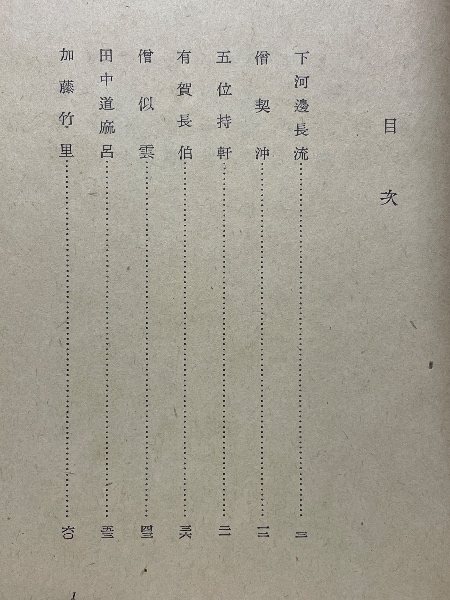 目次
下河邊長流……二
僧契沖……一二
五位持軒……二一
有賀長伯……三六
僧似雲……四三
田中道麻呂……五三
加藤竹里……六〇
1